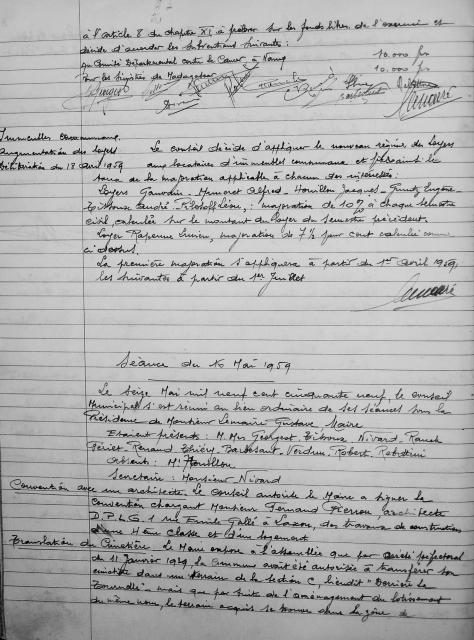 à l'article 8 du chapitre XI à prélever sur les fonds libres de l'exercice et
décide d'accorder les subventions suivantes :
Au Comité Départemental contre le Cancer à Nancy 10.000 frs
Pour les Sinistrés de Madagascar 10.000 frs
Immeubles communaux.
Augmentation des loyers
Délibération du 18 Avril 1959
Le conseil décide d'appliquer le nouveau régime des loyers
aux locataires d'immeubles communaux et fixe ainsi le
taux de la majoration applicable à chacun des intéressés :
Loyers Alfred Jacques Eugène
André : majoration de 10% à chaque semestre
civil, calculée sur le montant du loyer du semestre précédent.
Loyer Lucien, majoration de 7½ pour cent calculée comme
ci dessus.
La première majoration s'appliquera à partir du 1er avril 1959,
les suivantes à partir du 1er Juillet
Séance du 16 Mai 1959
Le seize Mai mil neuf cent cinquante neuf, le conseil
Municipal s'est réuni au lieu ordinaire de ses séances sous la
Présidence de Monsieur Lemaire Gustave Maire
Etaient présents : M.Mrs Georget Nivard, Rauch
Renaud, Thiéry, Verdun, Robert,
Absent : Mr
Secrétaire : Monsieur Nivard
Convention avec un architecte. Le Conseil autorise le Maire à signer la
convention chargeant Monsieur Fernand architecte
D.P.L.G. 1 rue Emile Gallé à Laxou, des travaux de construction
d'une 4ème classe et d'un logement
Translation du Cimetière. Le Maire expose à l'assemblée que par arrêté préfectoral
du 11 Janvier la commune avait été autorisée à transférer son
cimetière dans un terrain de la section C, lieudit "Derrière la
mais que par suite de l'aménagement du lotissement
du même nom, le terrain acquis se trouve dans la zône de